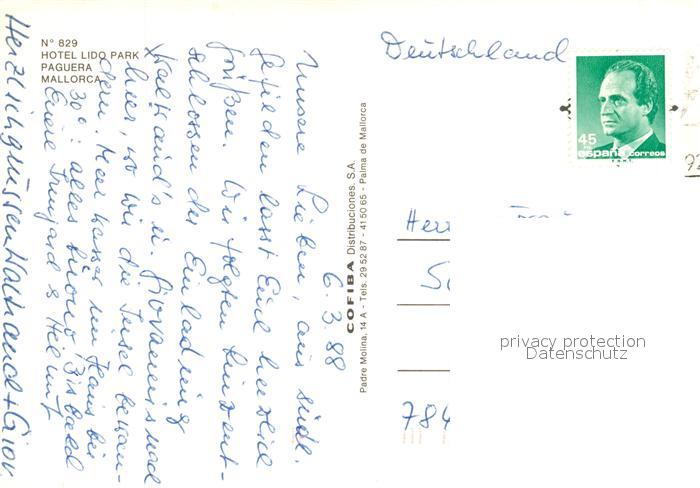 N° 829
HOTEL LIDO PARK
PAGUERA
MALLORCA
6.3.88
Unsere Lieben, aus südl.
Gefilden lasst Euch herzlich
grüßen. Wir folgten kurzent-
schlossen der Einladung
Nathand's u. Giovannis nach
hier, wo wir die Insel bewan-
dern. Meerwasser im Haus bei
30° alles bueno, Bis bald
Eure Irmgard & Helmut
Herzlich grüssen Nathand + Giov.
COFIBA Distribuciones, S.A.
Padre Molina, 14 A - Tels: 29 52 87 - 41 50 65 - Palma de Mallorca
Deutschland
45
españa correos
Herr
784
privacy protection
Datenschutz